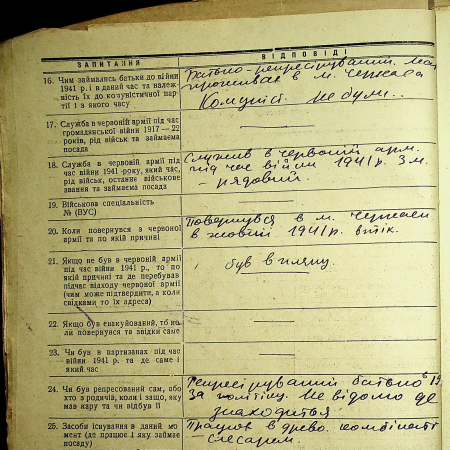 ЗАПИТАННЯ
ВІДПОВІДІ
16. Чим займались батьки до війни
1941 р. і в даний час та належ-
ність їх до комуністичної пар-
тії і з якого часу
Батько-репресірувании. Мати
проживає в м. Черкаса
Комуніст. не були.
17. Служба в червоній армії під час
громадянської війни 1917—22
років, рід військ та займаєма
посада
18. Служба в червоній армії під
час війни 1941-року, який час,
рід військ, останнє військове
звання та займаєма посада
Служив в червоній арм.
під час війни 1941 р. 3 м.
— рядовий.
19. Військова спеціальність
№ (ВУС)
20. Коли повернувся в червоної
армії та по якій причині
Повернувся в м. Черкаси
в жовтні 1941 р. втік.
21. Якщо не був в червоній армії
під час війни 1941 р., то по
якій причині та де перебував
підчас відходу червоної армії
(чим може підтвердити, а коли
свідками то їх адреса)
був в пляну.
22. Якщо був евакуйований, то ко-
ли повернувся та звідки саме
23. Чи був в партизанах під час
війни 1941 р. та де саме і
який час
24. Чи був репресований сам, або
хто з родичів, коли і защо, яку
мав кару та чи відбув її
Репресірувании батько в 19
За політику. Не відомо де
знаходиться
25. Засоби існування в даний мо-
мент (де працює і яку займає
посаду)
Працюв в древо. комбінаті
— слесарем.